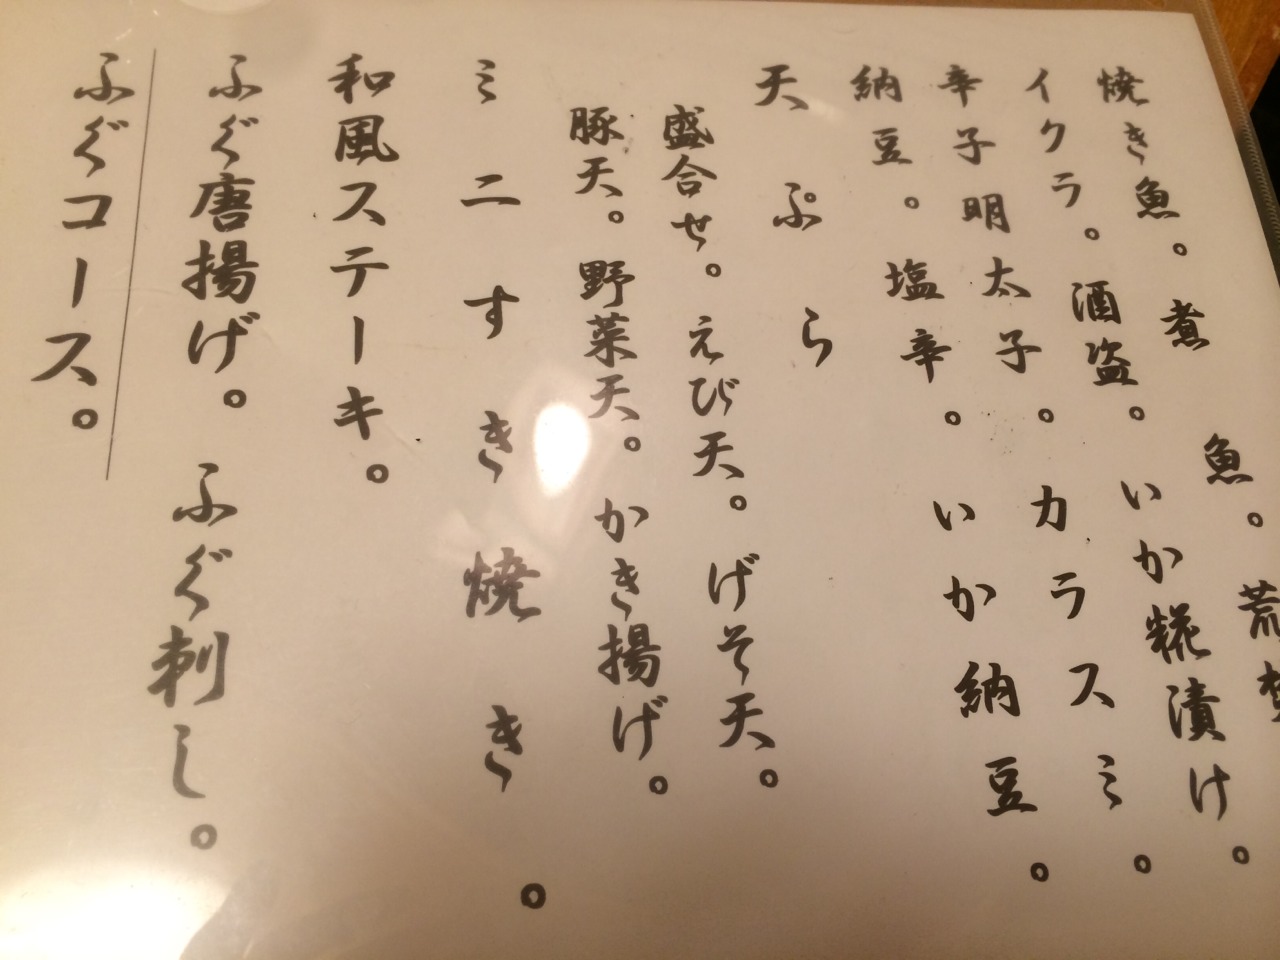 焼き魚。煮魚。荒
イクラ。酒盗。いか糀漬け。
辛子明太子。カラスミ。
納豆。塩辛。いか納豆。
天ぷら
盛合せ。えび天。げそ天。
豚天。野菜天。かき揚げ。
ミニすき焼き。
和風ステーキ。
ふぐ唐揚げ。ふぐ刺し。
ふぐコース。